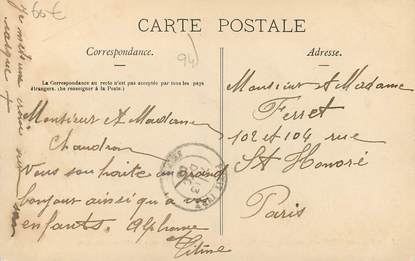 60€
94
CARTE POSTALE
Correspondance.
Adresse.
La Correspondance au recto n'est pas acceptée par tous les pays
étrangers. (Se renseigner à la Poste.)
Monsieur et Madame
Chaudron
Vous souhaite un grand
bonjour ainsi qu'a vos
enfants. Alphonse
Titine
Monsieur et Madame
Ferret
102 et 104 rue
St Honoré
Paris
Je mets une croix